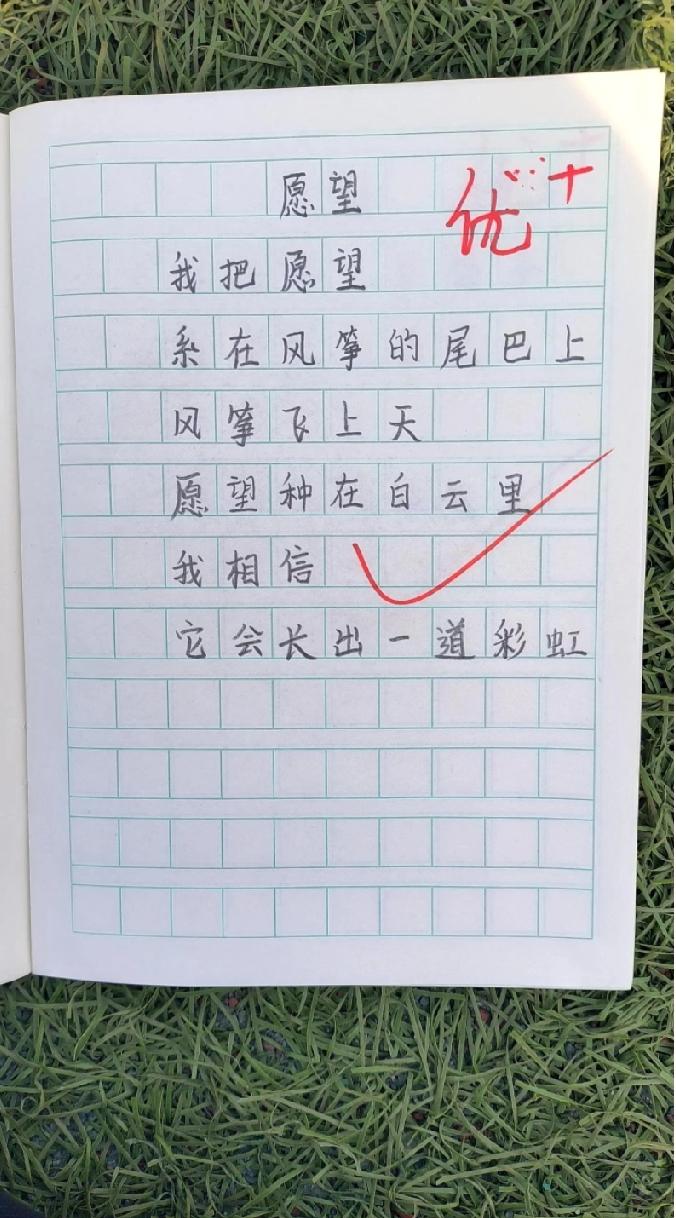 愿望
优+
我把愿望
系在风筝的尾巴上
风筝飞上天
愿望种在白云里
我相信
它会长出一道彩虹